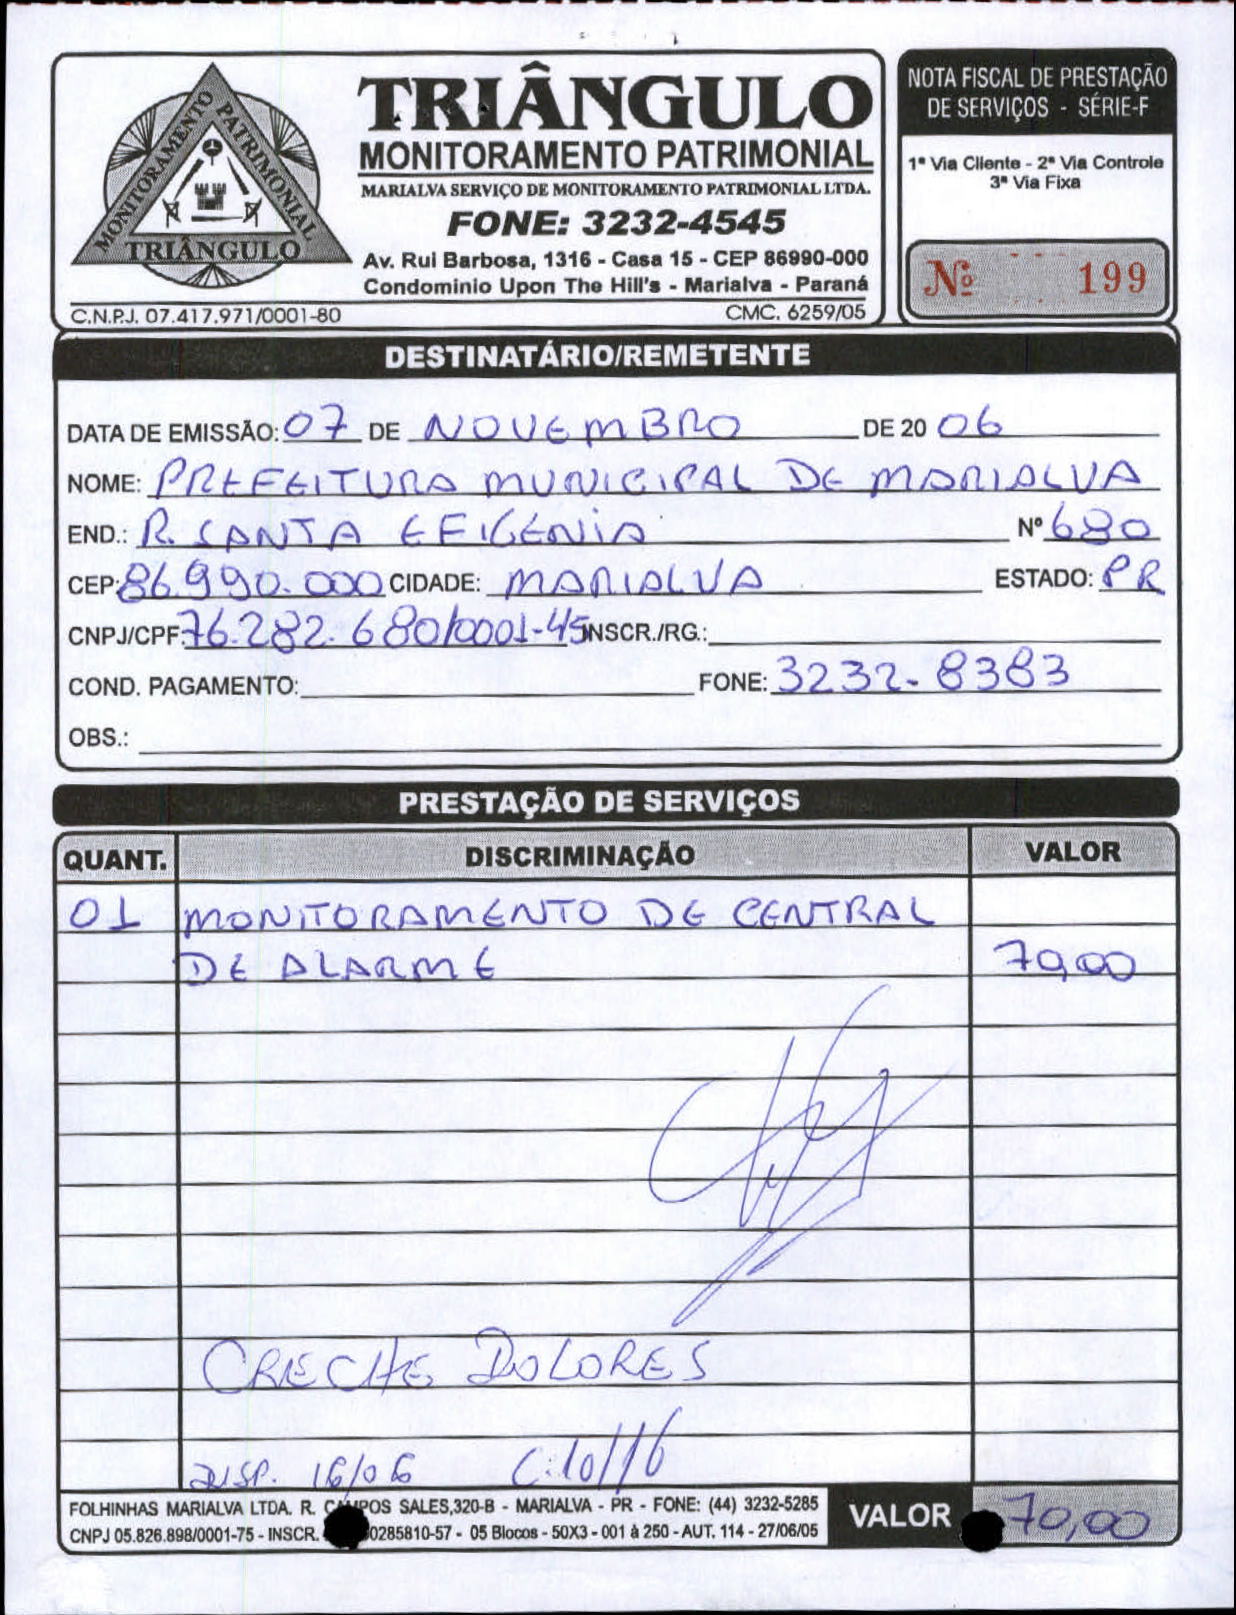 MONITORAMENTO PATRIMONIAL
TRIÂNGULO
C.N.P.J. 07.417.971/0001-80
TRIÂNGULO
MONITORAMENTO PATRIMONIAL
MARIALVA SERVIÇO DE MONITORAMENTO PATRIMONIAL LTDA.
FONE: 3232-4545
Av. Rui Barbosa, 1316 - Casa 15 - CEP 86990-000
Condominio Upon The Hill's - Marialva - Paraná
CMC. 6259/05
NOTA FISCAL DE PRESTAÇÃO
DE SERVIÇOS - SÉRIE-F
1ª Via Cliente - 2ª Via Controle
3ª Via Fixa
Nº 199
DESTINATÁRIO/REMETENTE
DATA DE EMISSÃO: 07 DE NOVEMBRO DE 20 06
NOME: PREFEITURA MUNICIPAL DE MARIALVA
END.: R. SANTA EFIGENIA Nº 680
CEP: 86.990.000 CIDADE: MARIALVA ESTADO: PR
CNPJ/CPF: 76.282.680/0001-45 INSCR./RG.:
COND. PAGAMENTO: FONE: 3232-8383
OBS.:
PRESTAÇÃO DE SERVIÇOS
QUANT. DISCRIMINAÇÃO VALOR
01 MONITORAMENTO DE CENTRAL
DE ALARME 70,00
CRECHE DOLORES
DISP. 16/06 C:10/16
FOLHINHAS MARIALVA LTDA. R. CAMPOS SALES,320-B - MARIALVA - PR - FONE: (44) 3232-5285
CNPJ 05.826.898/0001-75 - INSCR. 0285810-57 - 05 Blocos - 50X3 - 001 à 250 - AUT. 114 - 27/06/05
VALOR 70,00